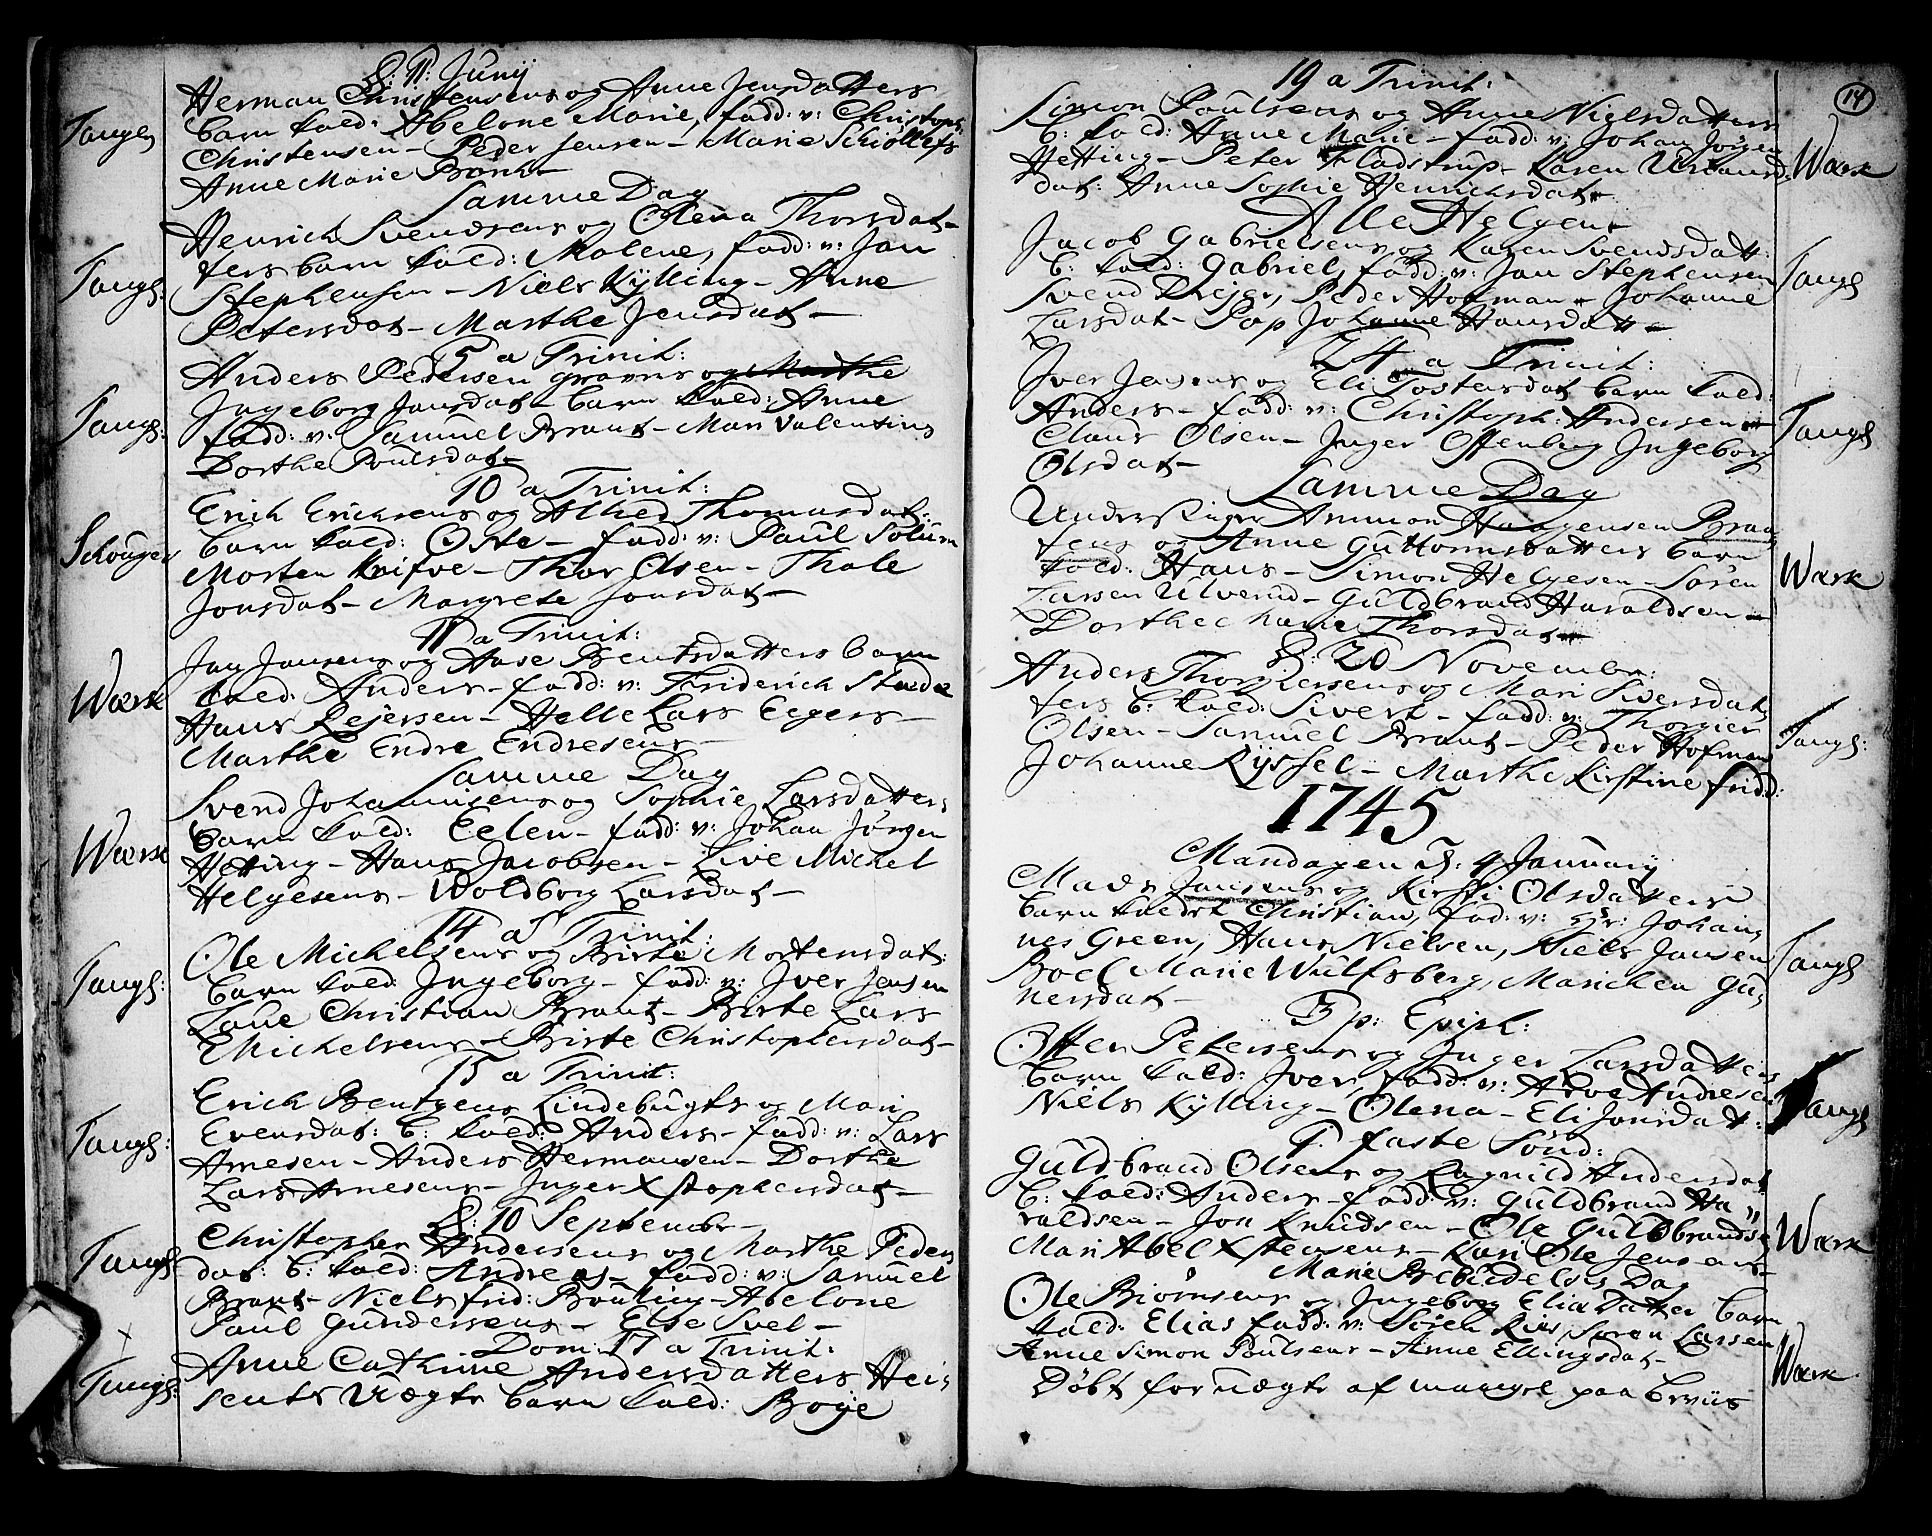 D: 11: Junij
Herman Christensens og Anne Jensdatters
Tangen
barn kald: Abelone Marie, fadd: v: Christoph:
Christensen – Peder Jensen – Marie Schiøllefs
Anne Marie
Samme Dag
Henrich Svendsens og Olena Thorsdat-
Tangl:
ters barn kald: Malene, fadd: v: Jan
Stephensen – Niels Kylling – Anne
Petersdat – Marthe Jensdat –
5 a Trinit:
Anders Pedersen og Marthe
Tangl:
Ingeborg Jansdat – barn kald: Anne
fadd: v: Samuel Brant – Mari Valentins
Dorthe Poulsdat –
10 a Trinit:
Erich Ericksens og Alhed Thomasdat:
Schouger
barn kald: – fadd: v: Paul Solum
Morten Knifve – Thor Olsen – Thale
Jonsdat – Margrete Jonsdat –
11 a Trinit:
Jan Jansens og Aase Bentsdatters barn
Wærk
kald: Anders – fadd: v: Friderich
Hans Rejersen – Helle Lars Eggers –
Marthe Endre Endresens –
Samme Dag
Svend Johannisens og Sophie Larsdatters
Wærk
barn kald: Eelen – fadd: v: Johan Jørgen
Hetting – Hans Jacobsen – Live Michel
Helgesens – Woldborg Larsdat –
14 a Trinit:
Ole Michelsens og Birte Mortensdat:
Tangl:
barn kald: Ingeborg – fadd: v: Jver Jensen
Laue Christian Brant – Birte Lars
Michelsens – Birte Christophersdat –
15 a Trinit:
Erich Bentzens Lindebugts og Mari
Tangl:
Evensdat: b: kald: Anders – fadd: v: Lars
Arnesen – Anders Hermansen – Dorthe
Lars Arnesens – Inger Xstophersdat –
D: 10 September –
Christopher Andersens og Marthe Peders
Tangl:
dat: b: kald: Andreas – fadd: v: Samuel
Brant – Niels frid: Bouting – Abelone
Paul Gundersens – Else Svel –
Dom: 17 a Trinit:
Anne Cathrine Andersdatters Hei-
Tangl:
sents Uægte barn kald: Boye
14
19 a Trinit:
Simon Poulsens og Anne Nielsdatters
b: kald: Anne Marie – fadd: v: Johan Jørgen
Wærk
Hetting – Peter Fladstrup – Karen
dat: Anne Sophie Henrichsdat –
Alle Helgen
Jacob Gabrielsens og Karen Svendsdatt:
b: kald: Gabriel, fadd: v: Jan Stephensen
Tangl:
Svend Drejer, Peder Hofman – Johanne
Larsdat – Pap Johanne Hansdatt –
24 a Trinit:
Jver Jensens og Eli Tostensdat barn kald:
Anders – fadd: v: Christoph: Andersen –
Tangl:
Claus Olsen – Inger Offenberg Ingeborg
Olsdat –
Samme Dag
Understiger Ammon Haagensen Braa,
tens og Anne Guttormsdatters barn
Wærk
kald: Hans – Simon Helgesen – Søren
Larsen Ulverud – Guldbrand Haraldsen –
Dorthe Thorsdat –
D: 20 November:
Anders Thorgiersens og Mari Siversdat,
ters b: kald: Sivert – fadd: v: Thorgier
Tangl:
Olsen – Samuel Brant – Peder Hofman
Johanne Ryssel – Marthe Kirstine fridd:
1745
Mandagen D: 4 Januarij
Mads Jansens og Kirsti Olsdatters
barn kaldet Christian, fad: v: Hr: Johan,
Tangl
nes Green, Hans Nielsen, Niels Jansen
Boel Marie Wulfsberg, Marichen Gu,
nersdat –
3 p: Epiph:
Otter Petersens og Inger Larsdatters
barn kald: Jver, fadd: v: Arve Andresen
Tangl
Niels Kylling – Olena – Eli Jonsdatt:
1. faste Sønd:
Guldbrand Olsens og Ragnild Andersdat
b: kald: Anders – fadd: v: Guldbrand Ha
Wærk
raldsen – Jon Knudsen – Ole Guldbrandsø
Mari Abel Xstensens – Kari Ole Jensens –
Marie Bebudelsis Dag
Ole Biørnsens og Ingeborg Elia Datter barn
kald: Elias fadd: v: Søren Riis, Søren Larsen
Wærk
Anne Simon Poulsens – Anne Ellingsdat –
Døbt for uægte af mangel paa beviis